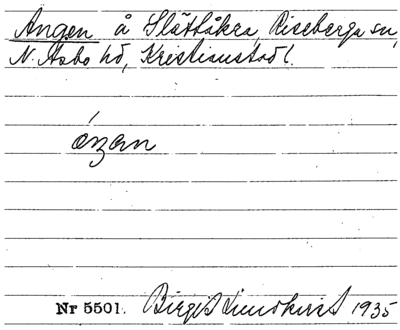 Angen å Slättåkra, Riseberga sn,
N. Åsbo hd, Kristianstad l.
áŋən
Nr 5501. Birgit Lundkvist 1935